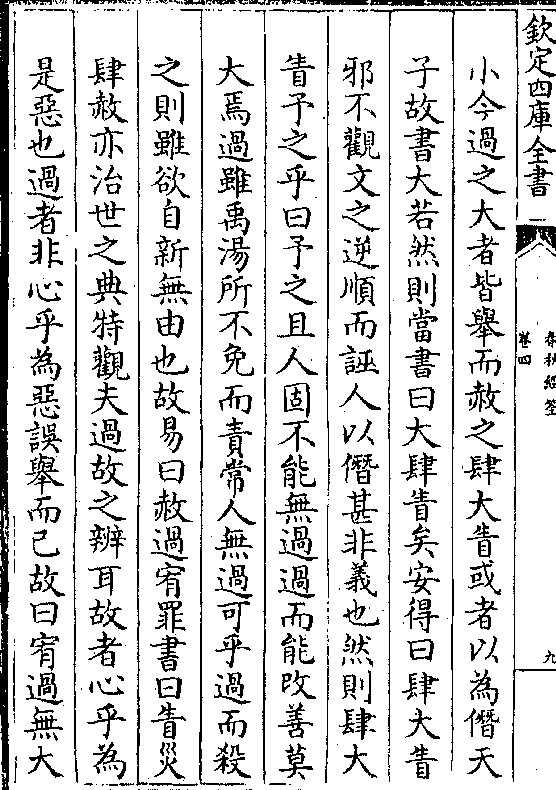 欽定四庫全書
春秋經筌
卷四
九
小今過之大者皆舉而赦之肆大眚或者以為僭天
子故書大若然則當書曰大肆眚矣安得曰肆大眚
邪不觀文之逆順而誣人以僭甚非義也然則肆大
眚予之乎曰予之且人固不能無過過而能改善莫
大焉過雖禹湯所不免而責常人無過可乎過而殺
之則雖欲自新無由也故易曰赦過宥罪書曰眚災
肆赦亦治世之典特觀夫過故之辨耳故者心乎為
是惡也過者非心乎為惡誤舉而已故曰宥過無大